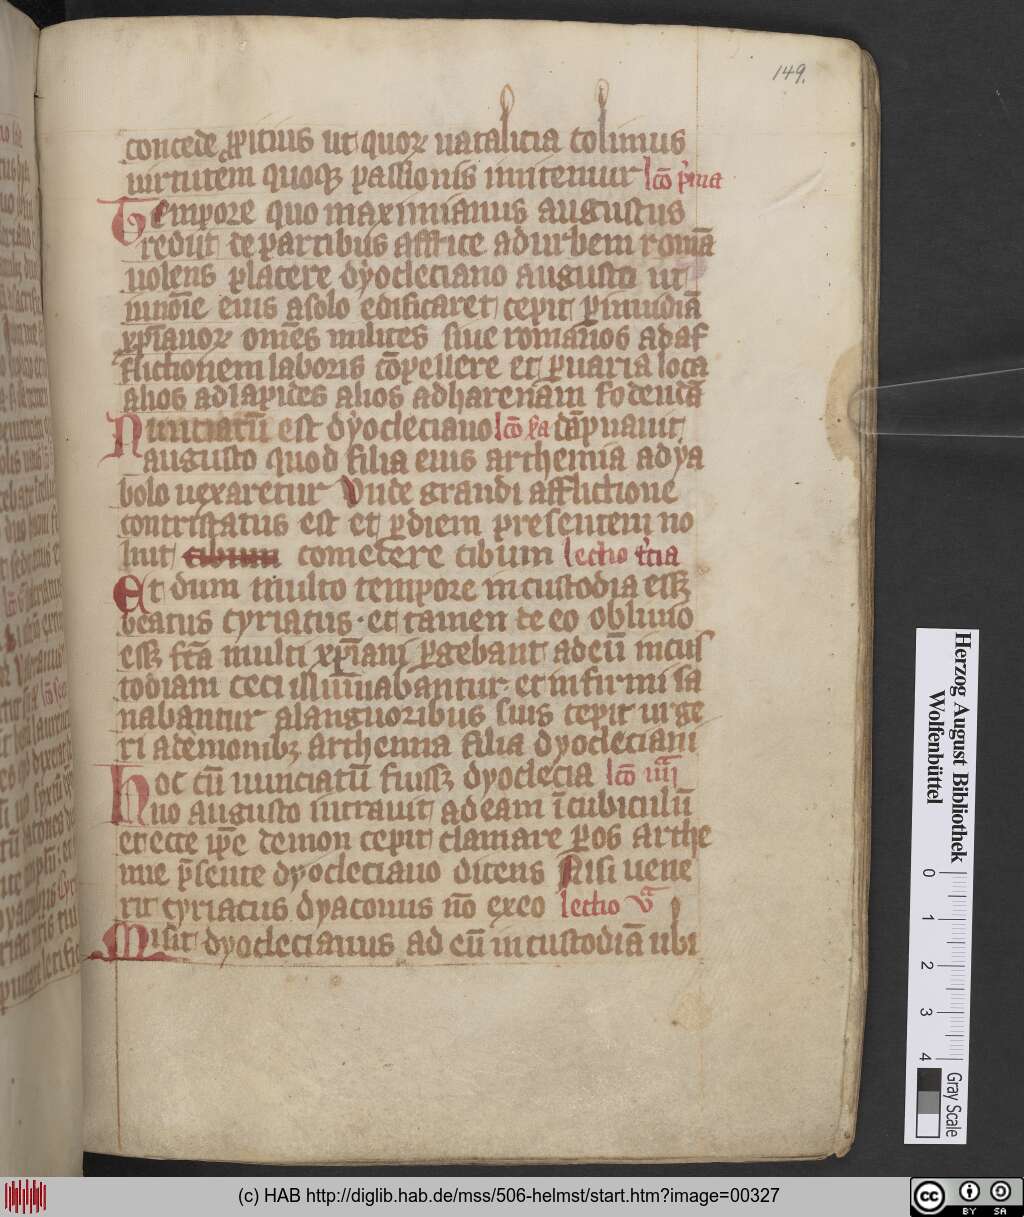 149.
concede ꝓpicius ut quoꝝ natalicia colimus
uirtutem quoqꝫ passionis imitemur lc̄o p̓ma
Tempore quo maximianus augustus
rediit de partibus affrice ad urbem romā
uolens placere dyocleciano augusto ut
in noīe eius a solo edificaret cepit ꝑ inuidiā
xp̄ianoꝝ om̄es milites siue romanos ad af
flictionem laboris cōpellere et ꝑ uaria loca
alios ad lapides alios ad harenam fodendā
Nunciatū est dyocleciano lc̄o s̄a dāpnauit
augusto quod filia eius arthemia a dya
bolo uexaretur Vnde grandi afflictione
contristatus est et ꝑ diem presentem no
luit cibum comedere cibum lectio t̓cia
Et dum multo tempore in custodia essꝫ
beatus cyriacus · et tamen de eo obliuio
essꝫ fc̄a multi xp̄iani ꝑgebant ad eū in cus
todiam ceci illūīnabantur · et infirmi sa
nabantur a languoribus suis cepit urge
ri a demonibꝫ arthemia filia dyocleciani
Hoc cū nunciatū fuissꝫ dyoclecia lc̄o iiiiᵃ
no augusto intrauit ad eam ī cubiculū
et ecce ip̄e demon cepit clamare ꝑ os arthe
mie p̄sente dyocleciano dicens Nisi uene
rit cyriacus dyaconus nō exeo lectio vᵃ
Misit dyoclecianus ad eū in custodiā ubi
Herzog August Bibliothek
Wolfenbüttel
0 1 2 3 4
Gray Scale
(c) HAB http://diglib.hab.de/mss/506-helmst/start.htm?image=00327
cc BY SA